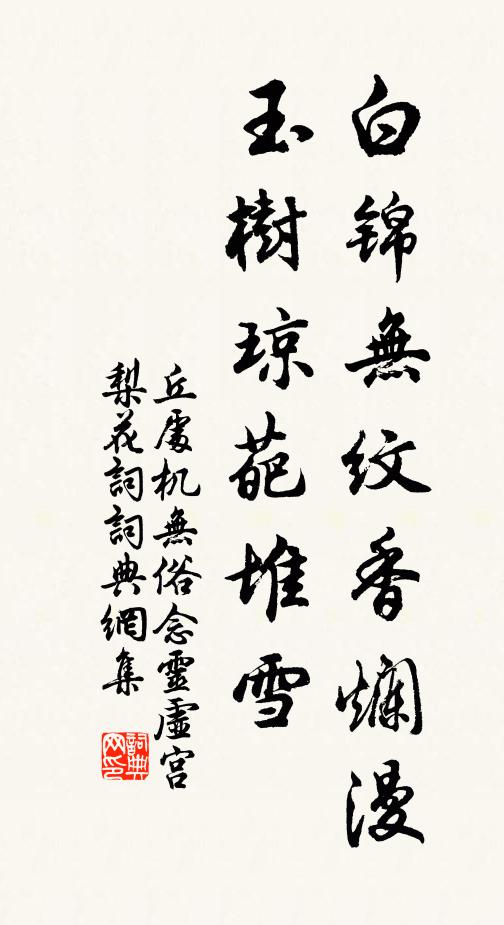 白锦無紋香爛漫
玉樹琼葩堆雪
丘處机無俗念靈虚宫
梨花詞詞典網集
詞典网印